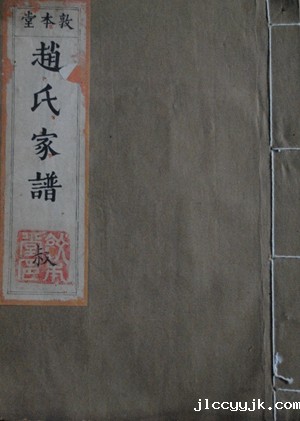 敦本堂
趙氏家譜
叔
jlccyyjk.com